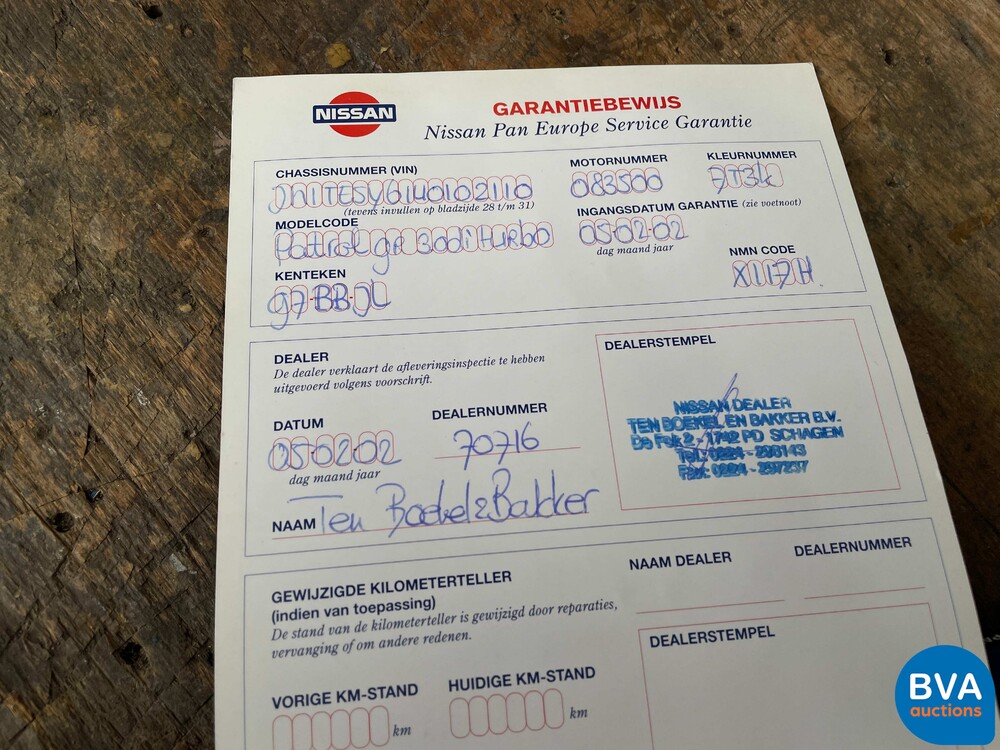 NISSAN
GARANTIEBEWIJS
Nissan Pan Europe Service Garantie
CHASSISNUMMER (VIN)
MOTORNUMMER
KLEURNUMMER
JN1TESY61U0102110
083500
(tevens invullen op bladzijde 28 t/m 31)
MODELCODE
INGANGSDATUM GARANTIE (zie voetnoot)
Patrol gr 300i turbo
05-02-02
dag maand jaar
KENTEKEN
NMN CODE
97-BB-JL
X117H
DEALER
De dealer verklaart de afleveringsinspectie te hebben
uitgevoerd volgens voorschrift.
DEALERSTEMPEL
DATUM
DEALERNUMMER
NISSAN DEALER
TEN BOEKEL EN BAKKER B.V.
De Fok 2 - 1742 PD SCHAGEN
05-02-02
70716
dag maand jaar
NAAM Ten Boekel & Bakker
GEWIJZIGDE KILOMETERTELLER
(indien van toepassing)
De stand van de kilometerteller is gewijzigd door reparaties,
vervanging of om andere redenen.
NAAM DEALER
DEALERNUMMER
DEALERSTEMPEL
VORIGE KM-STAND
HUIDIGE KM-STAND
km
km
BVA
auctions